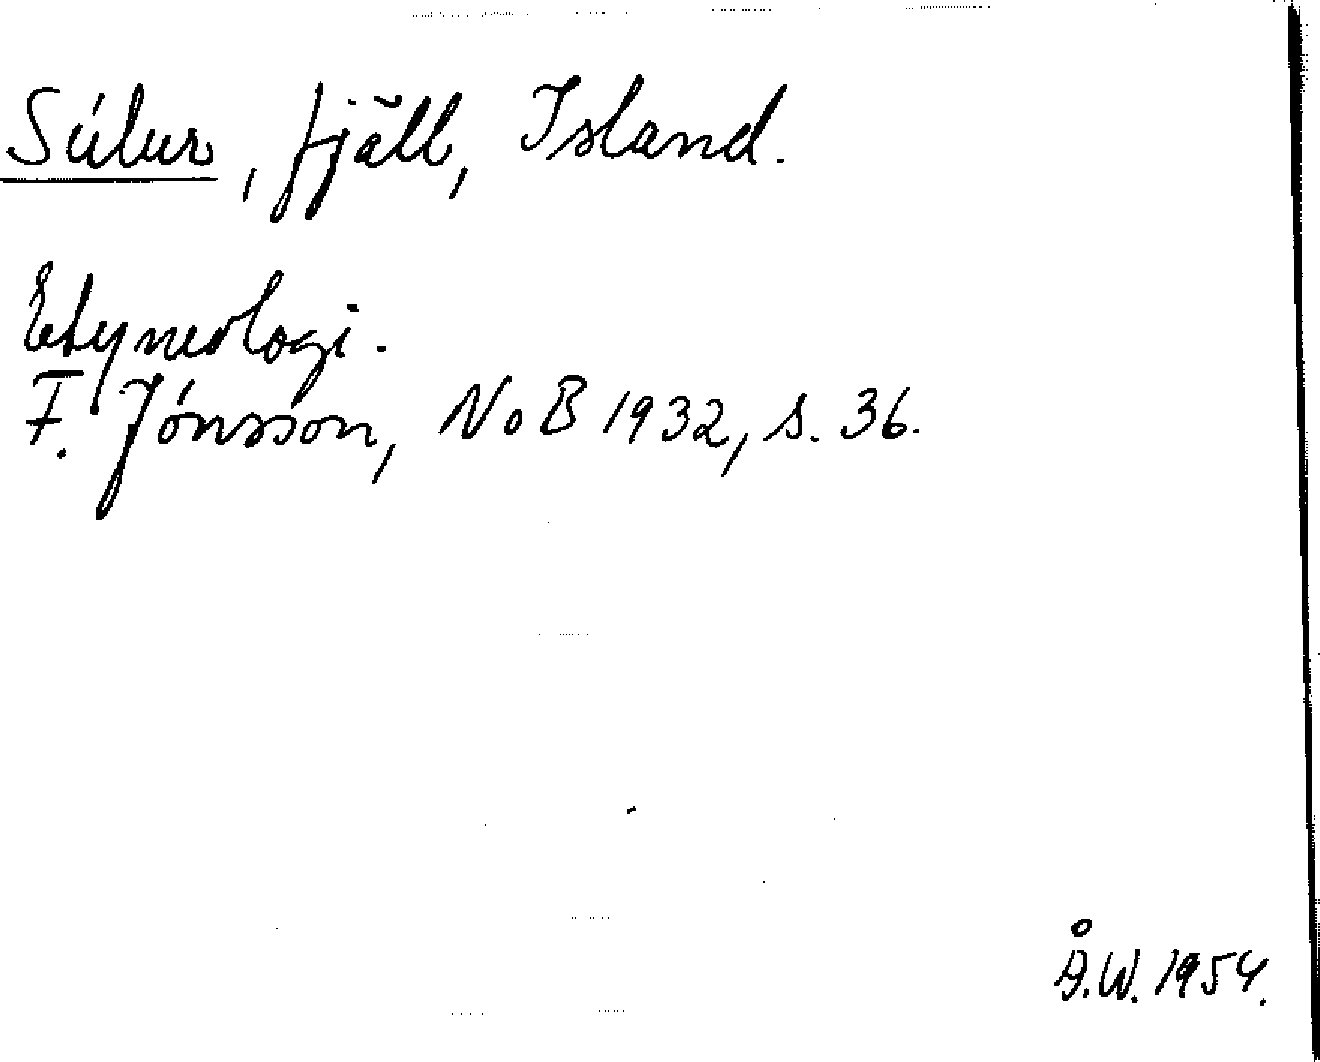 Súlur, fjäll, Island.
Etymologi.
F. Jónsson, NoB 1932, s. 36.
Å.W. 1954.